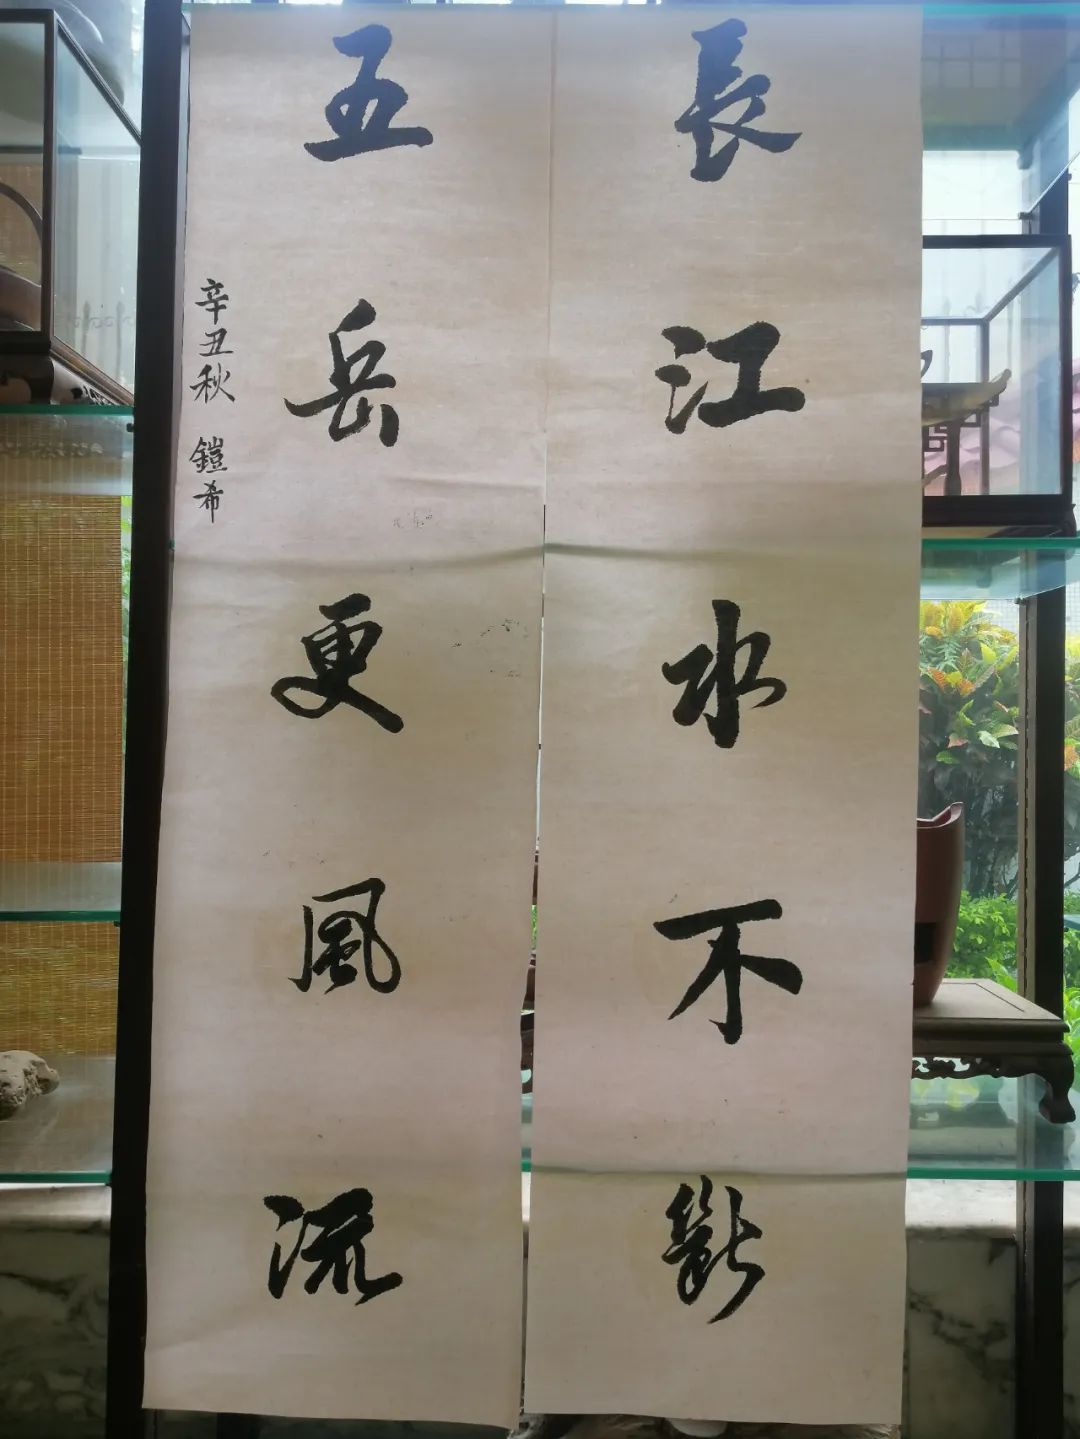 長江水不斷
五岳更風流
辛丑秋 鎧希